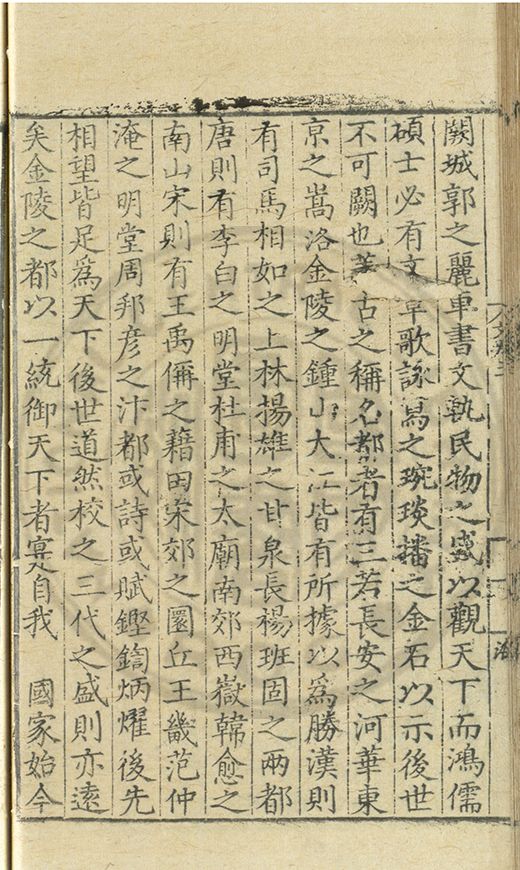 闕城郭之麗車書文執民物之盛以觀天下而鴻儒
碩士必有文章歌詠寫之琬琰播之金石以示後世
不可闕也蓋古之稱名都者有三若長安之河華東
京之嵩洛金陵之鍾山大江皆有所據以為勝漢則
有司馬相如之上林揚雄之甘泉長楊班固之兩都
唐則有李白之明堂杜甫之太廟南郊西嶽韓愈之
南山宋則有王禹偁之藉田宋郊之圜丘王畿范仲
淹之明堂周邦彥之汴都或詩或賦鏗鍧炳燿後先
相望皆足為天下後世道然校之三代之盛則亦遠
矣金陵之都以一統御天下者寔自我　國家始今